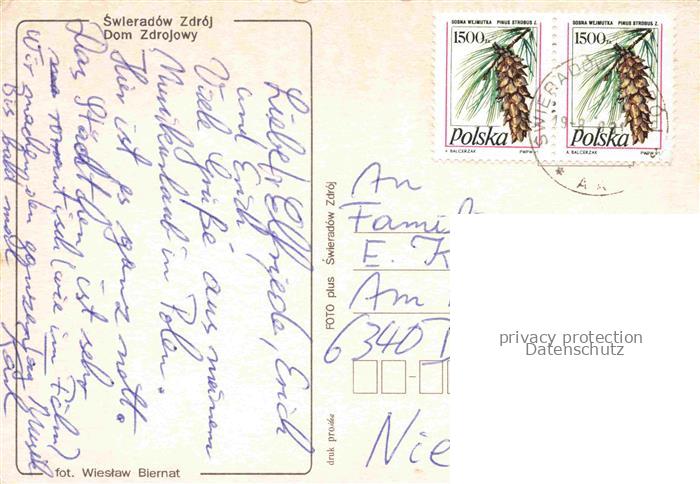 Świeradów Zdrój
Dom Zdrojowy
Liebe Elfriede, Erich
und Erich
Viele Grüße aus meinem
Musikurlaub in Polen.
Hier ist es ganz nett.
Das Städtchen ist sehr
romantisch (wie im Film)
Wir machen den ganzen Tag Musik
Bis bald mal
fot. Wiesław Biernat
FOTO plus Świeradów Zdrój
druk
SOSNA WEJMUTKA PINUS STROBUS L.
1500 zł
Polska
A. BALCERZAK PWPW
SOSNA WEJMUTKA PINUS STROBUS L.
1500 zł
Polska
A. BALCERZAK PWPW
An
Fami
E. K
Am
6340 D
Nie
privacy protection
Datenschutz